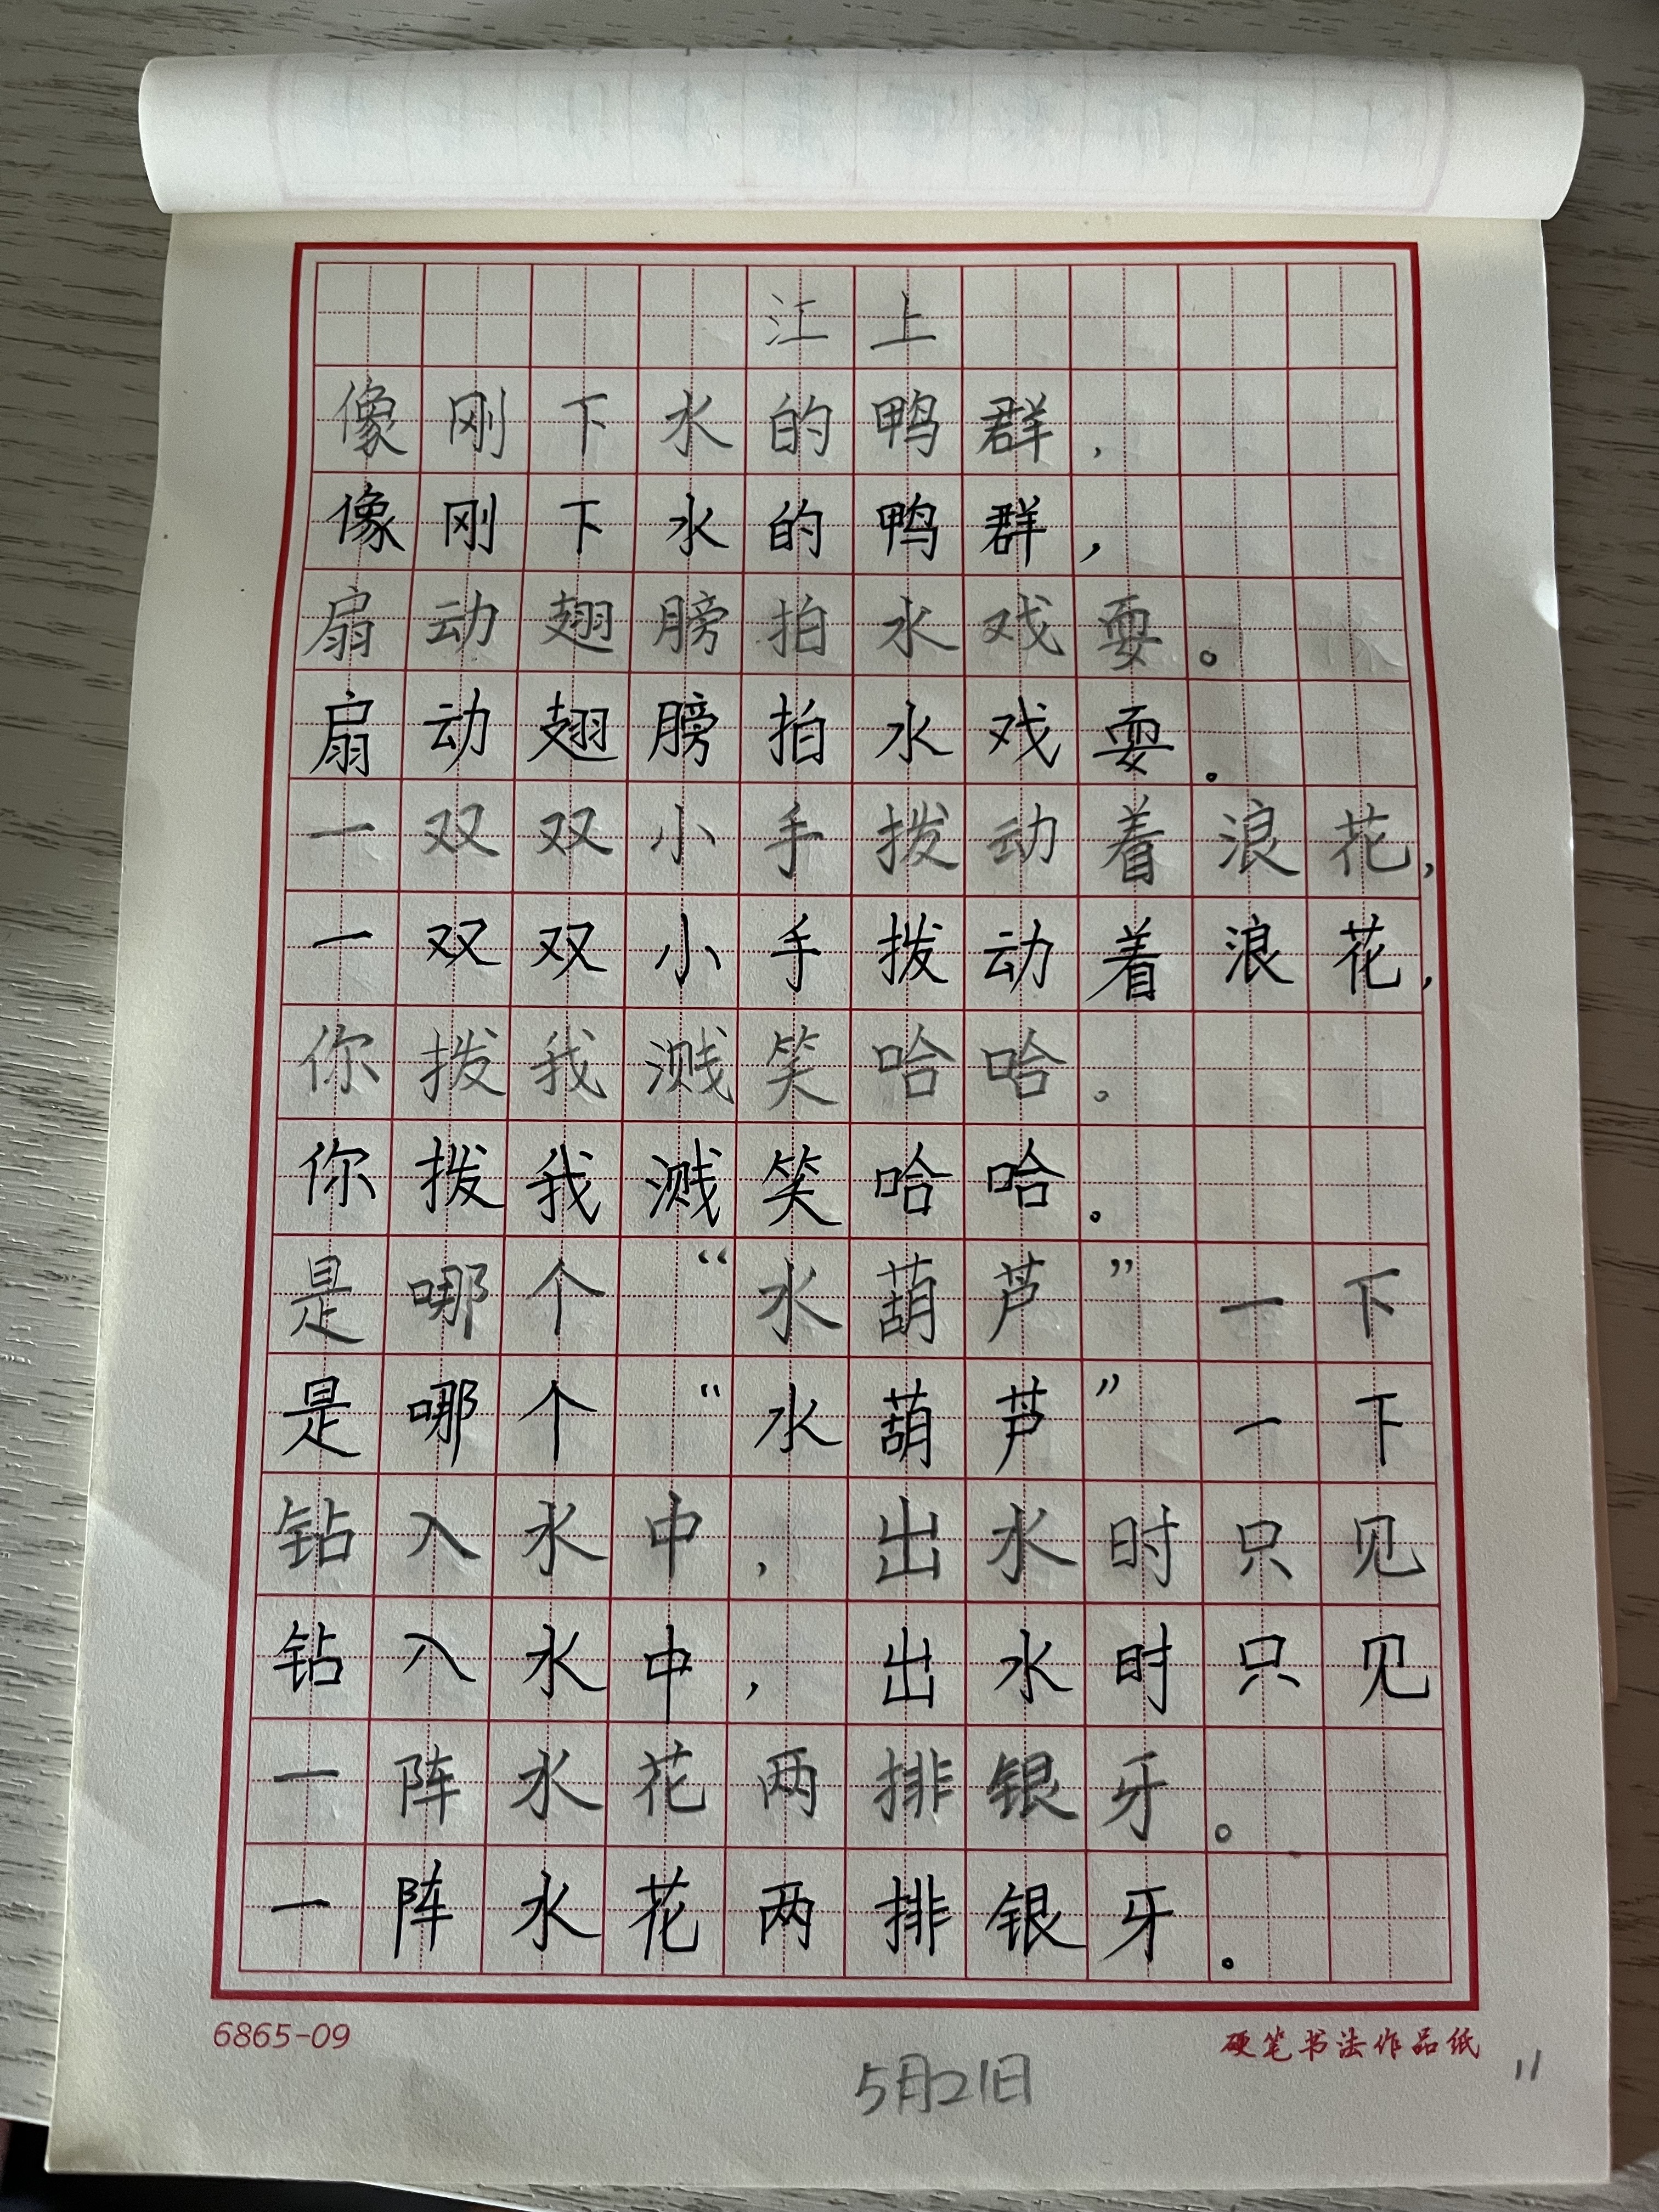 江上
像刚下水的鸭群，
像刚下水的鸭群，
扇动翅膀拍水戏耍。
扇动翅膀拍水戏耍。
一双双小手拨动着浪花，
一双双小手拨动着浪花，
你拨我溅笑哈哈。
你拨我溅笑哈哈。
是哪个“水葫芦”一下
是哪个“水葫芦”一下
钻入水中，出水时只见
钻入水中，出水时只见
一阵水花两排银牙。
一阵水花两排银牙。
6865-09 硬笔书法作品纸
5月21日 11